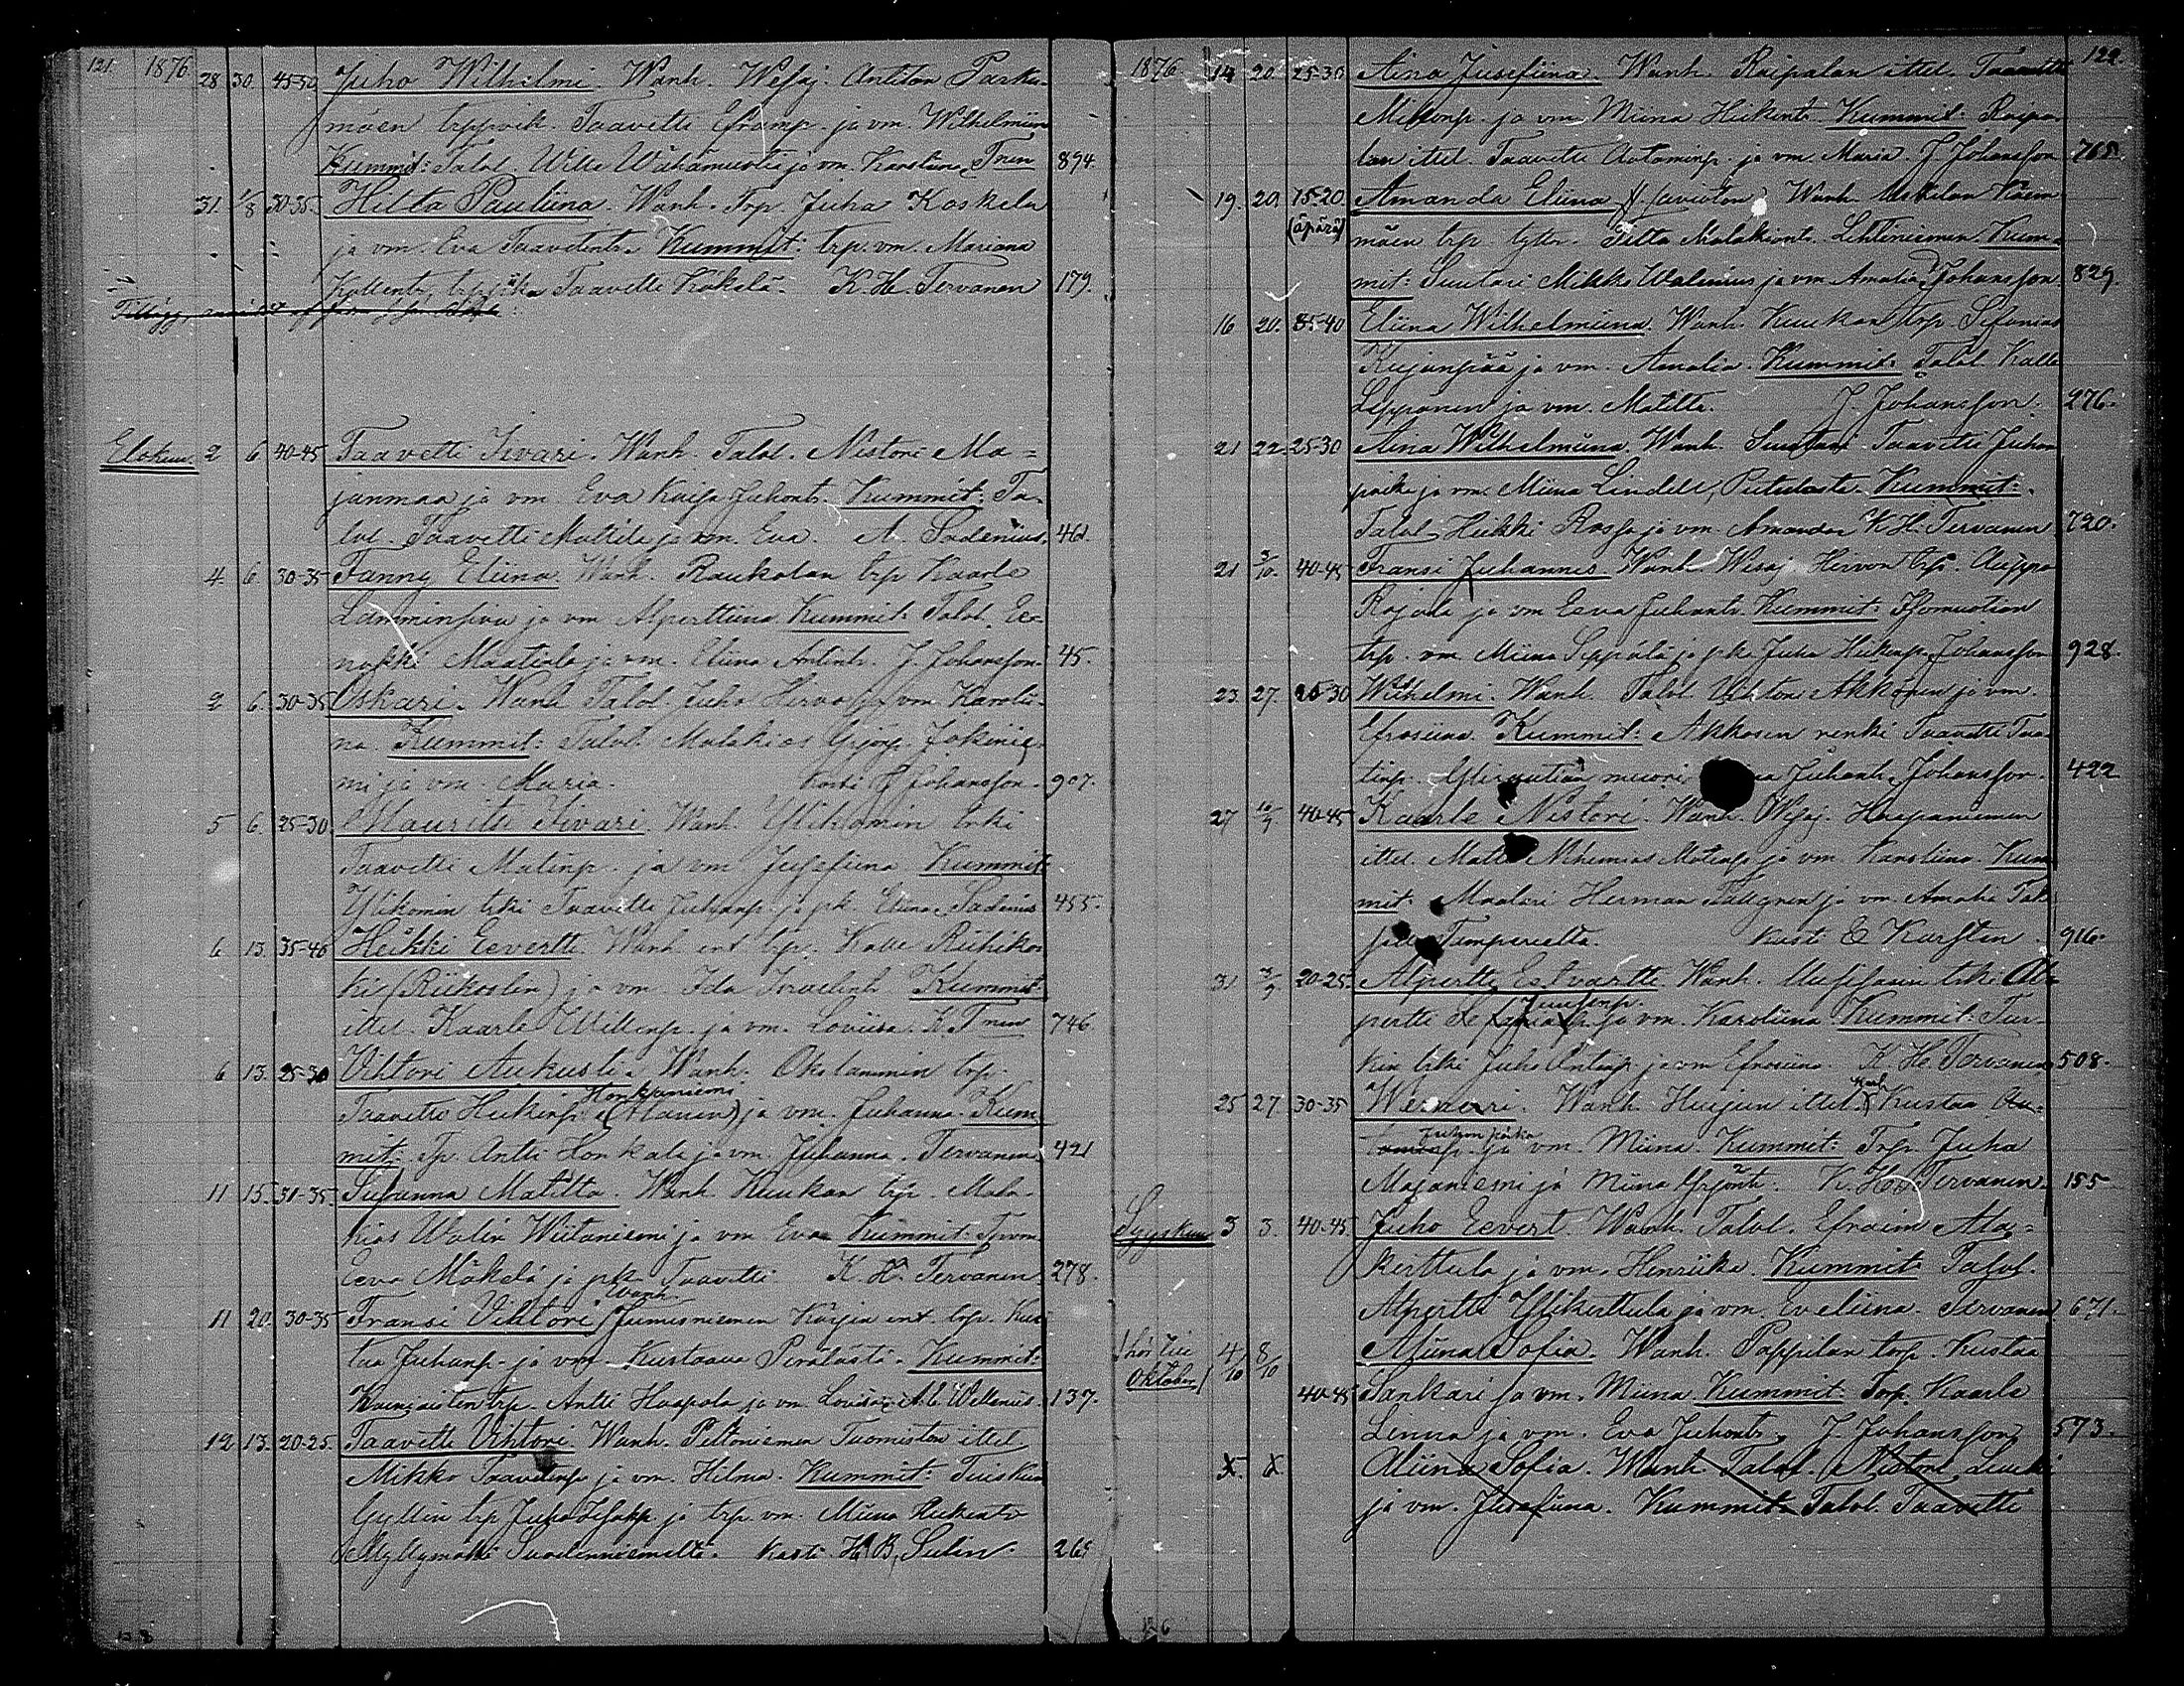 121. 1876 28 30. 45-50 Juho Wilhelmi. Wanh. Wesaj. Anttilan Parku-
mäen trppoik. Taavetti Efr. ja vm. Wilhelmiina
Kummit: Talol. Wille Wähämuotia ja vm. Karoliina. Tnen 894.
31. 1/8 30-35. Hilta Pauliina. Wanh. Trp. Juha Koskela
ja vm. Eva Taavetintr. Kummit: trp. vm. Mariana
Kallentr. trp. Taavetti Käkelä. K. H. Tervanen 179.
Elokuu 2 6 40-45 Taavetti Iivari. Wanh. Talol. Nestori Ma=
junmaa ja vm. Eva Kaisa Juhont. Kummit: Ta-
lol. Taavetti Mattila ja vm. Eva. A. Sadenius. 461.
4. 6. 30-35 Fanny Eliina. Wanh. Raukolan trp Kaarle
Lamminsivu ja vm Alperttiina. Kummit: Talol. Ee-
nokki Maatiala ja vm. Eliina Antintr. J. Johansson. 45.
2 6. 30-35 Oskari. Wanh Talol. Juho Hirvo ja vm Karolii-
na. Kummit: Talol. Malakias Yrjönp. Jokinie-
mi ja vm. Maria. Kasti J Johansson. 907.
5 6. 25-30. Maurits Iivari. Wanh. Ylikomin trki
Taavetti Matinp. ja vm Jusefiina Kummit:
Ylikomin trki Taavetti Juhanp. ja pk. Eliina. Sadenius 455.
6 13. 35-40 Heikki Eevertti. Wanh ent. trp. Kalle Riihikos
ki (Riikoslin) ja vm Ida Israelintr. Kummit:
ittel. Kaarle Willenp. ja vm. Loviisa. K. Tnen 746
6 13. 25-30 Vihtori Aukusti. Wanh. Okslammin trp.
Honkaniemi
Taavetti Heikinp. (Alanen) ja vm. Juhanna. Kum-
mit: Tp. Antti Honkala ja vm. Juhanna. Tervanen. 421
11 15. 31-35. Susanna Matilta. Wanh. Kuukan trp. Mala-
kias Walin Wiitaniemi ja vm Eva. Kummit: Tp vm.
Eeva Mäkelä ja pk. Taavetti. K. H. Tervanen. 278.
Wanh.
11 20. 30-35 Fransi Vihtori Jumisniemen Karjan ent. trp. Kus-
taa Juhanp. ja vm. Kustaava Peralästä. Kummit:
trp. Antti Haapala ja vm. Loviisa. A. E. Wellenius. 137.
12 13. 20-25. Taavetti Vihtori. Wanh. Peltoniemen Tuomiston ittel.
Mikko Taavetinp ja vm. Hilma. Kummit: Tuiskun
Gyllin trp Juho Isakp. ja trp. vm. Miina Heikintr.
Myllymäki Suodenniemeltä. Kasti H. B. Selin. 265
122.
1876 14 20. 25-30 Aina Jusefiina. Wanh. Raipalan ittel. Taavetti
Mikonp. ja vm Miina Heikintr. Kummit: Raipa-
lan ittel. Taavetti Aataminp. ja vm. Maria. J. Johansson 765.
19. 20. 15-20. Amanda Eliina (avioton) Wanh. Käen-
(äpärä) mäen trp. tytär. Tilta Malakiantr. Lehtiniemen. Kum-
mit: Suutari Mikko Walenius ja vm. Amalia. J Johansson. 829.
16 20. 35-40 Eliina Wilhelmiina. Wanh. Kuukan trp. Sefanias
Kujanpää ja vm. Amalia. Kummit: Talol. Kalle
Lepponen ja vm. Matilta. J. Johansson. 276.
21 22. 25-30 Aina Wilhelmiina. Wanh. Suutari Taavetti Juhon
poika ja vm. Miina Lindell, Putulasta. Kummit:
Talol. Heikki Rossa ja vm. Amanda K. H. Tervanen 720.
21 3/10. 40-45 Fransi Juhannes. Wanh Wesaj. Hirvon trp. Auppo
Rajala ja vm Eeva Juhontr. Kummit: Isomuotian
trp. vm. Miina Seppälä ja pk. Juha Heikinp. Johansson 928.
23. 27. 25-30 Wilhelmi. Wanh. Talol. Vihton Akkonen ja vm.
Efrosiina. Kummit: Akkosen renki Taavetti Taa-
tinp. muori Juhantr. Johansson. 422
27 10/9. 40-45 Kaarle Nestori. Wanh. Wesaj. Haapaniemen
ittel. Matti Nehemias Matinp. ja vm. Karoliina. Kum-
mit. Maalari Herman Tallgren ja vm. Amalia
Tampereelta. Kasti E Karsten 916.
31 3/9 20-25. Alpertti Estvartti. Wanh. trki Al-
Juusenp.
pertti ja vm. Karoliina. Kummit: Tur-
kin trki Juho Antinp. ja vm Efrosiina. K. H. Tervanen 508.
25 27 30-35 Wernerri. Wanh. Huijun ittel. Kustaa Aa=
Juhon poika
taminp. ja vm. Miina. Kummit: Trp. Juha
Majaniemi ja Miina Yrjöntr. K. H. Tervanen. 155
Syyskuu 3 3. 40-45. Juho Eevert. Wanh. Talol. Efraim Ala=
kerttula ja vm. Henriika. Kummit: Talol.
Alpertti Ylikerttula ja vm. Eveliina. Tervanen. 671.
hör till Oktober 4/10 8/10 Miina Sofia. Wanh. Pappilan torp. Kustaa
40-45 Sankari ja vm. Miina. Kummit: Torp. Kaarle
Linna ja vm. Eva Juhontr. J. Johansson 573.
Aliina Sofia. Wanh. Talol. Nestori
ja vm. Jusefiina. Kummit: Talol. Taavetti